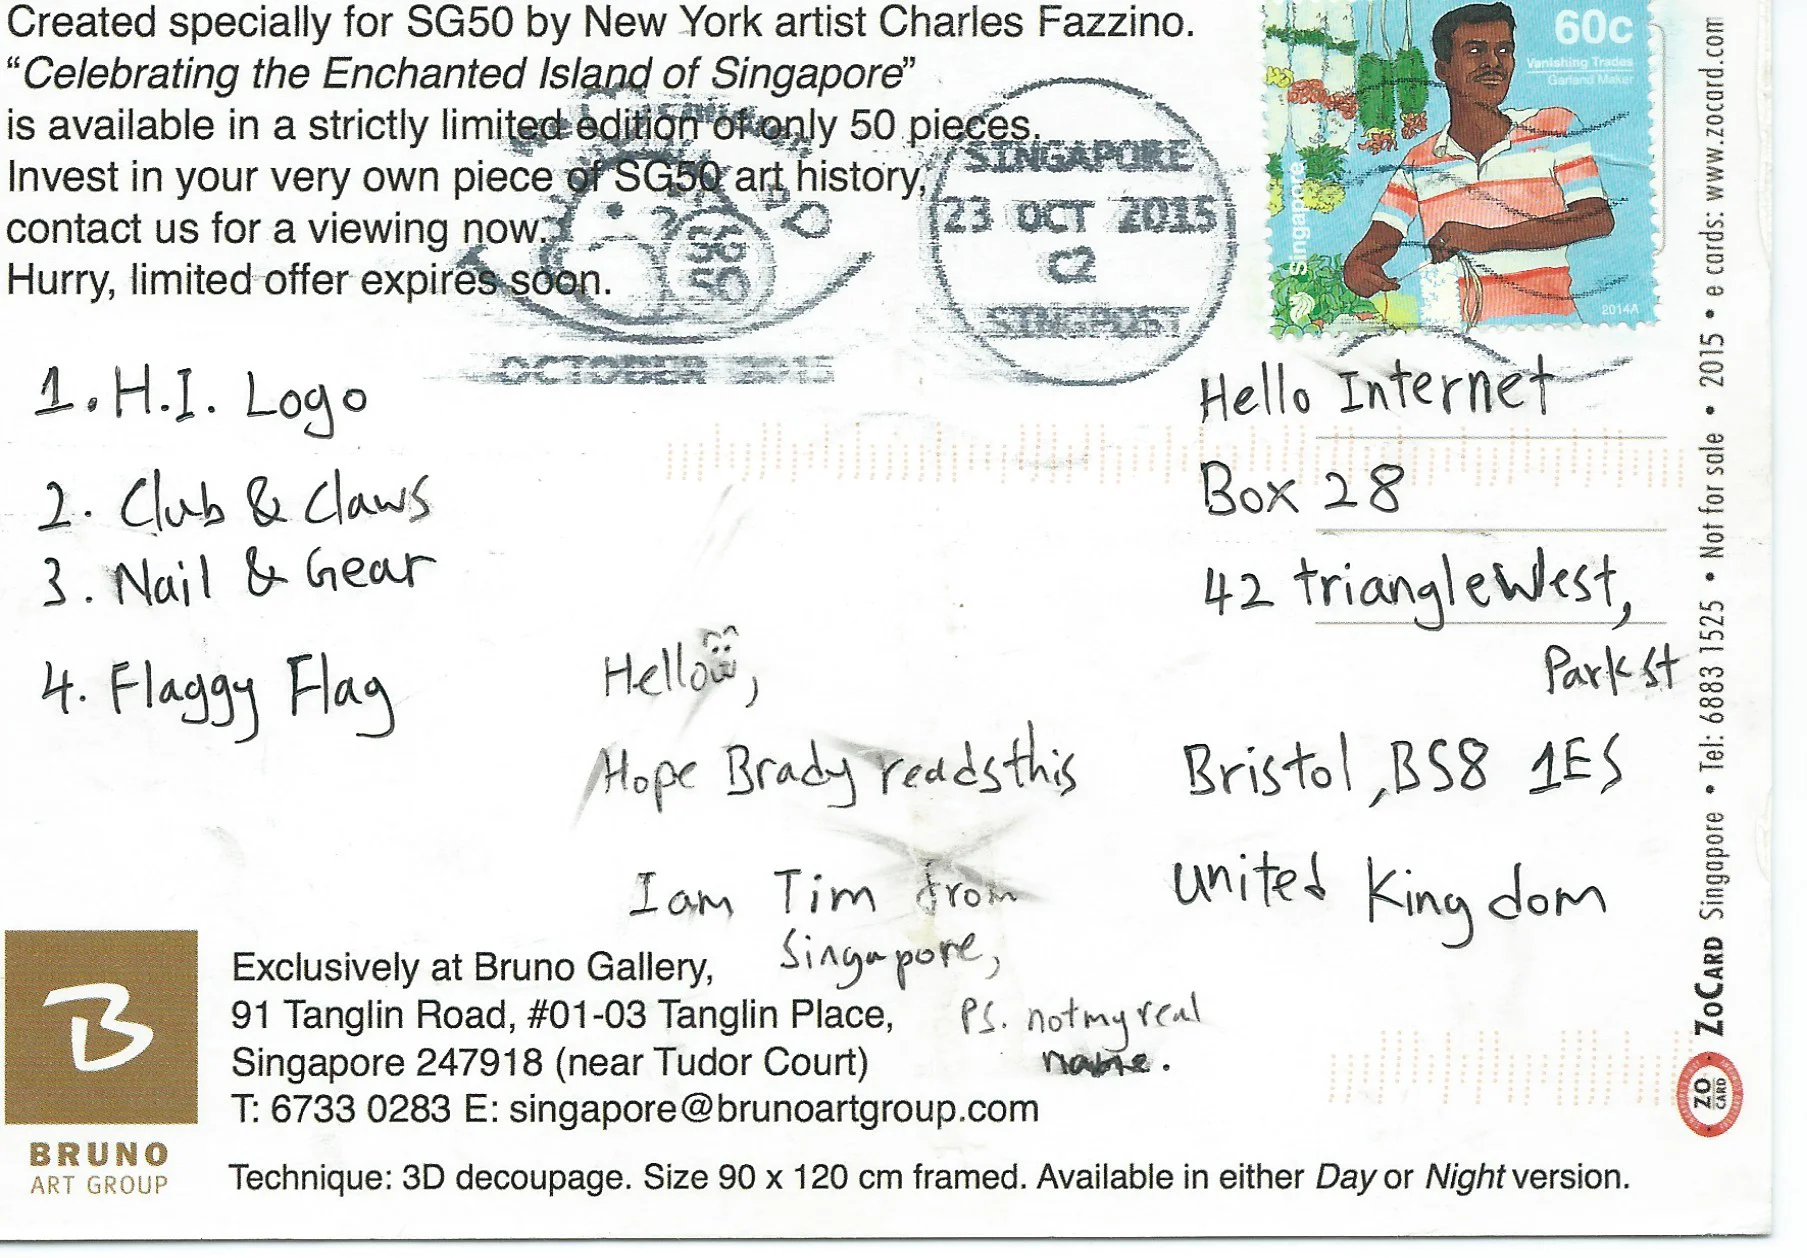 Created specially for SG50 by New York artist Charles Fazzino.
“Celebrating the Enchanted Island of Singapore”
is available in a strictly limited edition of only 50 pieces.
Invest in your very own piece of SG50 art history,
contact us for a viewing now.
Hurry, limited offer expires soon.
SINGAPORE
23 OCT 2015
C2
SINGPOST
OCTOBER 2015
60c
Vanishing Trades
Garland Maker
Singapore
2014A
1. H.I. Logo
2. Club & Claws
3. Nail & Gear
4. Flaggy Flag
Hello,
Hope Brady reads this
I am Tim from
Singapore,
PS. not my real
name.
Hello Internet
Box 28
42 triangle West,
Park St
Bristol, BS8 1ES
United Kingdom
B
BRUNO
ART GROUP
Exclusively at Bruno Gallery,
91 Tanglin Road, #01-03 Tanglin Place,
Singapore 247918 (near Tudor Court)
T: 6733 0283 E: singapore@brunoartgroup.com
Technique: 3D decoupage. Size 90 x 120 cm framed. Available in either Day or Night version.
ZOCARD Singapore • Tel: 6883 1525 • Not for sale • 2015 • e cards: www.zocard.com
ZO
CARD